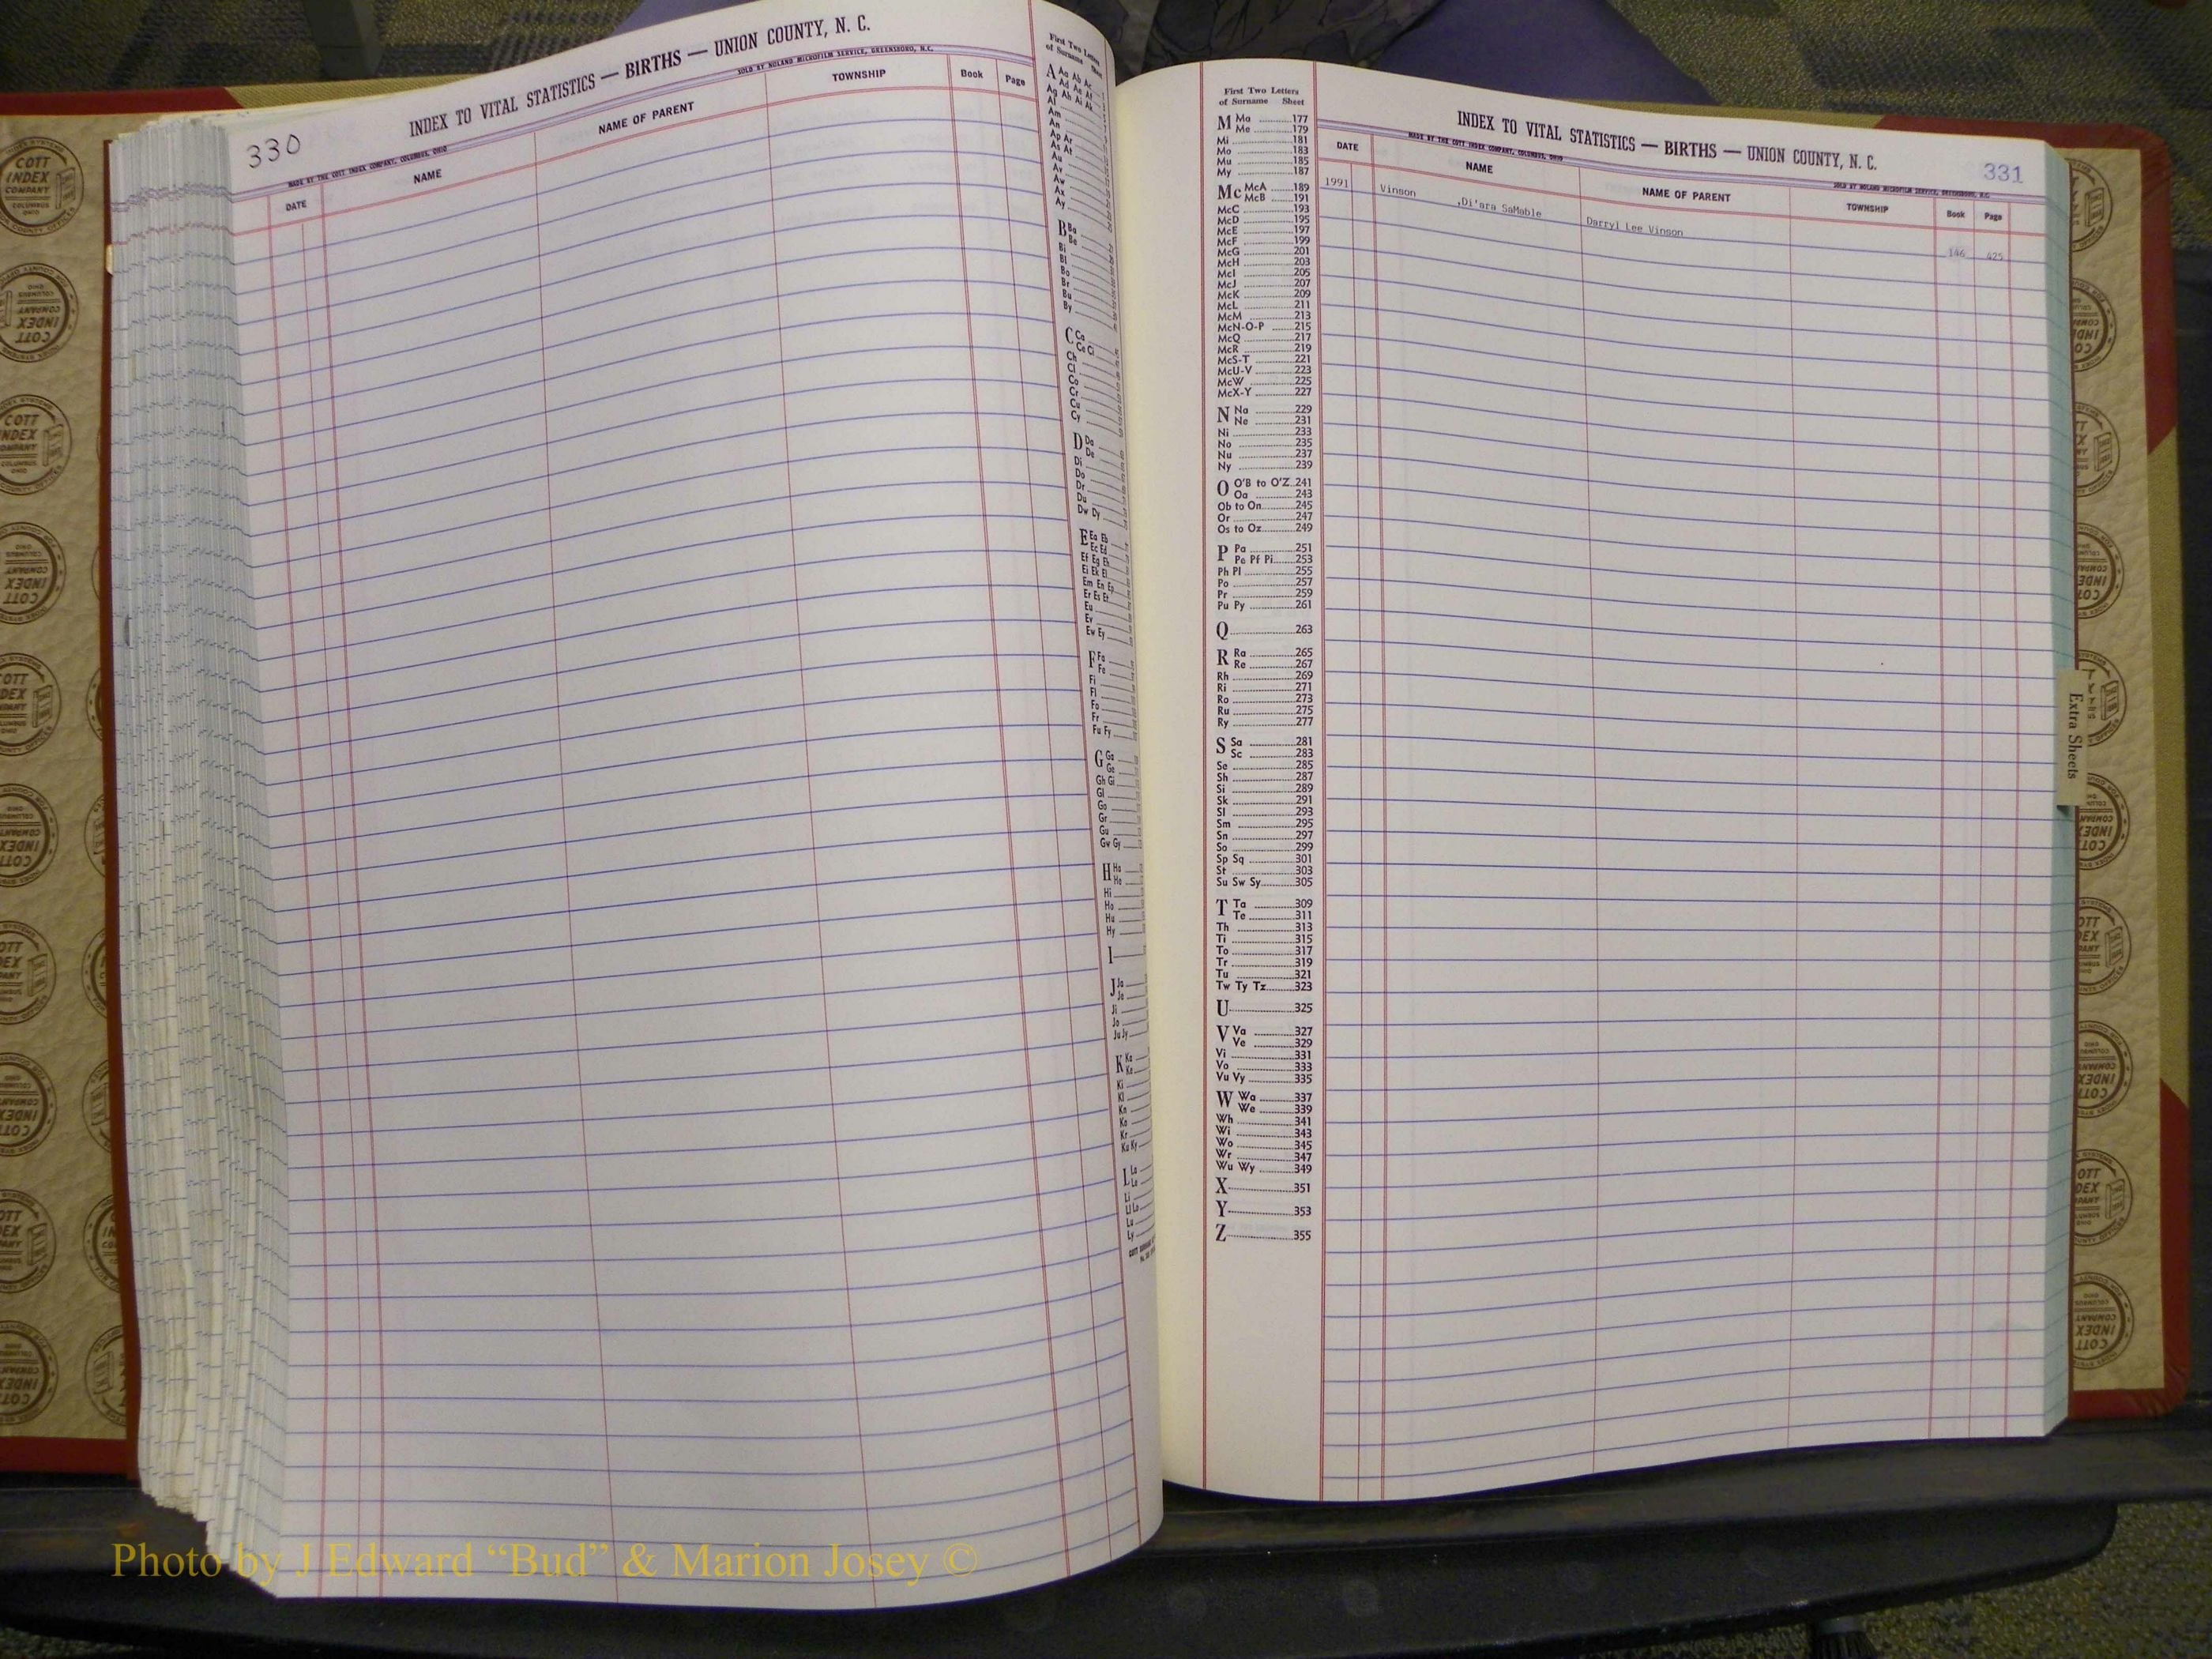 330
INDEX TO VITAL STATISTICS — BIRTHS — UNION COUNTY, N. C.
MADE BY THE COTT INDEX COMPANY, COLUMBUS, OHIO
SOLD BY NOLAND MICROFILM SERVICE, GREENSBORO, N.C.
DATE NAME NAME OF PARENT TOWNSHIP Book Page
First Two Letters
of Surname Sheet
A Aa Ab Ac
Ad Ae Af
Ag Ah Ai Ak
Al
Am
An
Ap Ar
As At
Au
Av
Aw
Ax
Ay
B Ba
Be
Bi
Bl
Bo
Br
Bu
By
C Ca
Ce Ci
Ch
Cl
Co
Cr
Cu
Cy
D Da
De
Di
Do
Dr
Du
Dw Dy
E Ea Eb
Ec Ed
Ef Eg Eh
Ei Ek El
Em En Ep
Er Es Et
Eu
Ev
Ew Ey
F Fa
Fe
Fi
Fl
Fo
Fr
Fu Fy
G Ga
Ge
Gh Gi
Gl
Go
Gr
Gu
Gw Gy
H Ha
He
Hi
Ho
Hu
Hy
I
J Ja
Je
Ji
Jo
Ju Jy
K Ka
Ke
Ki
Kl
Kn
Ko
Kr
Ku Ky
L La
Le
Li
Ll Lo
Lu
Ly
First Two Letters
of Surname Sheet
M Ma 177
Me 179
Mi 181
Mo 183
Mu 185
My 187
Mc McA 189
McB 191
McC 193
McD 195
McE 197
McF 199
McG 201
McH 203
McI 205
McJ 207
McK 209
McL 211
McM 213
McN-O-P 215
McQ 217
McR 219
McS-T 221
McU-V 223
McW 225
McX-Y 227
N Na 229
Ne 231
Ni 233
No 235
Nu 237
Ny 239
O O'B to O'Z 241
Oa 243
Ob to On 245
Or 247
Os to Oz 249
P Pa 251
Pe Pf Pi 253
Ph Pl 255
Po 257
Pr 259
Pu Py 261
Q 263
R Ra 265
Re 267
Rh 269
Ri 271
Ro 273
Ru 275
Ry 277
S Sa 281
Sc 283
Se 285
Sh 287
Si 289
Sk 291
Sl 293
Sm 295
Sn 297
So 299
Sp Sq 301
St 303
Su Sw Sy 305
T Ta 309
Te 311
Th 313
Ti 315
To 317
Tr 319
Tu 321
Tw Ty Tz 323
U 325
V Va 327
Ve 329
Vi 331
Vo 333
Vu Vy 335
W Wa 337
We 339
Wh 341
Wi 343
Wo 345
Wr 347
Wu Wy 349
X 351
Y 353
Z 355
INDEX TO VITAL STATISTICS — BIRTHS — UNION COUNTY, N. C.
331
MADE BY THE COTT INDEX COMPANY, COLUMBUS, OHIO
SOLD BY NOLAND MICROFILM SERVICE, GREENSBORO, N.C.
DATE NAME NAME OF PARENT TOWNSHIP Book Page
1991 Vinson ,Di'ara SaMable Darryl Lee Vinson 146 425
Extra Sheets
COTT INDEX COMPANY COLUMBUS OHIO
Photo by J Edward “Bud” & Marion Josey ©